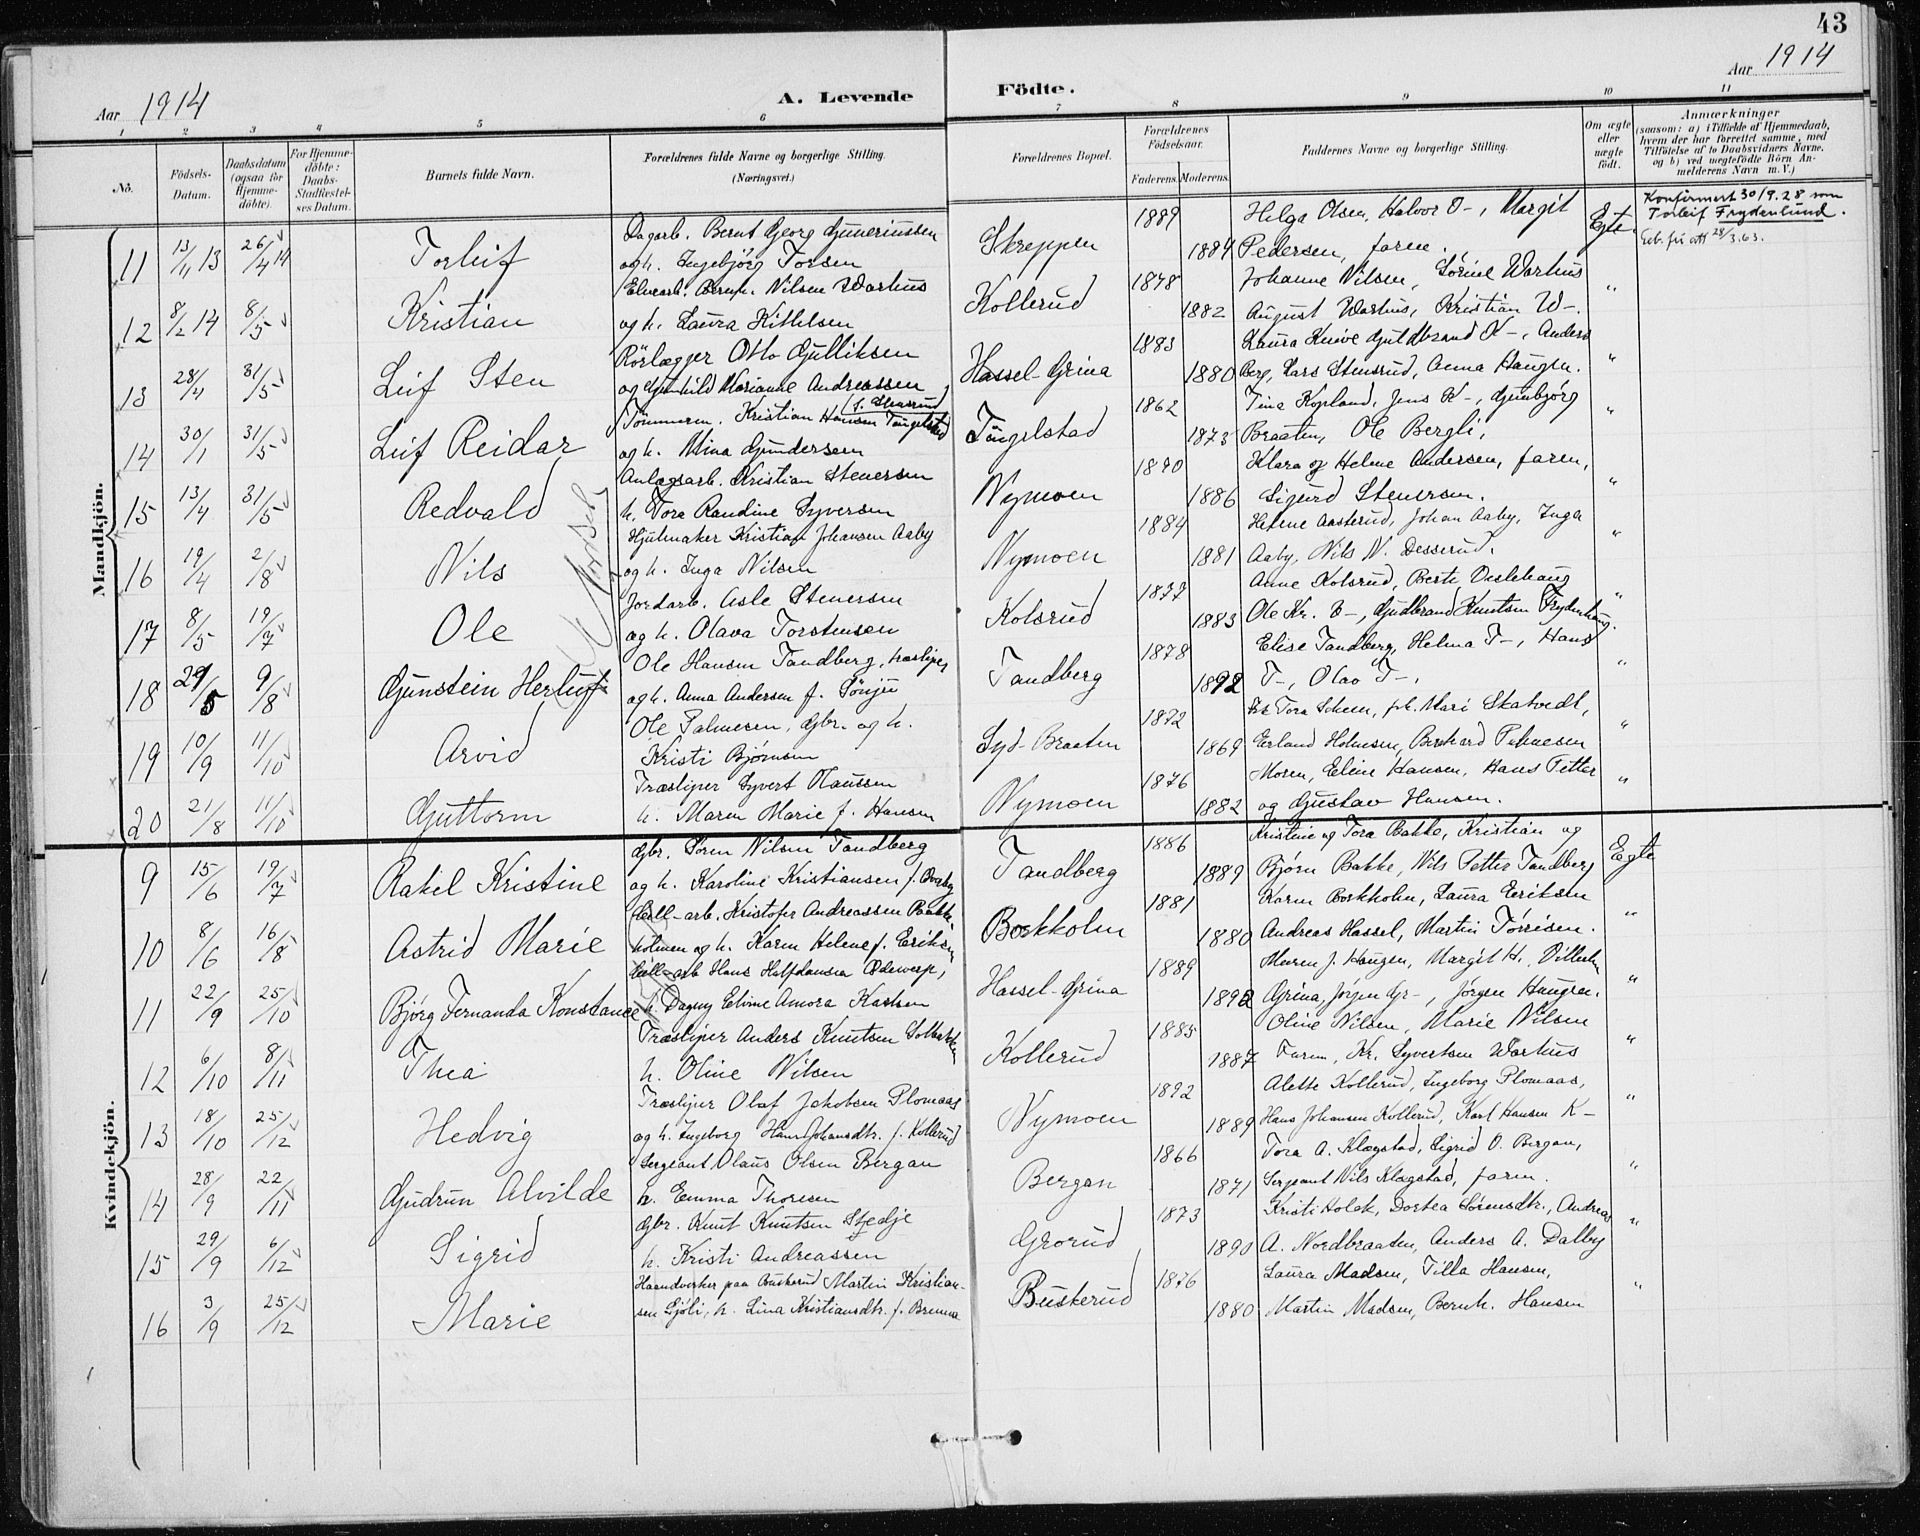 43
Aar 1914
A. Levende Födte.
Aar 1914
1 2 3 4 5 6 7 8 9 10 11
No.
Födsels-Datum.
Daabsdatum (ogsaa för Hjemmedöbte).
For Hjemmedöbte: Daabs-Stadfæstelses Datum.
Barnets fulde Navn.
Forældrenes fulde Navne og borgerlige Stilling. (Næringsvei.)
Forældrenes Bopæl.
Forældrenes Födselsaar.
Faderens. Moderens.
Faddernes Navne og borgerlige Stilling.
Om ægte eller uægte födt.
Anmærkninger
(saasom: a) i Tilfælde af Hjemmedaab, hvem der har forrettet samme, med Tilföielse af to Daabsvidners Navne, og b) ved uegtefödte Börn Anmelderens Navn m. V.)
Mandkjön.
11 13/11 13 26/4 14 Torleif
Dagarb. Bernt Georg Guneriussen
og h. Ingebjörg Torsen
Skreppen 1889 1884
Helga Olsen, Halvor O-, Margit
Pedersen, faren.
Egte.
Konfirmert 30/9.28 som
Torleif Frydenlund.
28/3.63.
12 8/2 14 8/5 Kristian
Elvearb. Bernh. Nilsen Warhus
og h. Laura Kittelsen
Kollerud 1878 1882
Johanne Nilsen, Sörine Warhus
August Warhus, Kristian W-.
"
13 28/4 31/5 Leif Sten
Rörlægger Otto Gulliksen
og Gunhild Marianne Andreassen
f. Stensrud
Hassel-Grina 1883 1880
Laura Knive Guldbrand K-, Anders
Berg, Lars Stensrud, Anna Haugen.
"
14 30/1 31/5 Leif Reidar
Tömmerm. Kristian Hansen Tangelstad
og h. Mina Gundersen
Tangelstad 1862 1873
Tina Kopland, Jens K-, Gunbjörg
Braaten, Ole Bergli,
"
15 13/4 31/5 Redvald
Anlægsarb. Kristian Stenersen
h. Tora Randine Syversen
Nymoen 1890 1886
Klara og Helene Andersen, faren,
Sigurd Stenersen.
"
16 19/4 2/8 Nils
Hjulmaker Kristian Johansen Aaby
og h. Inga Nilsen
Nymoen 1884 1881
Helene Aasterud, Johan Aaby, Inga
Aaby, Nils N. Desserud.
"
17 8/5 19/7 Ole
Jordarb. Asle Stenersen
og h. Olava Torstensen
Kolsrud 1877 1883
Anne Kolsrud, Berte Veslehaug
Ole Kr. V-, Gudbrand Knutsen Frydenhaug.
"
18 29/5 9/8 Gunstein Herluf
Ole Hansen Tandberg, træsliper
og h. Anna Andersen f. Sönju
Tandberg 1878 1892
Elise Tandberg, Helma T-, Hans
T-, Olav T-.
"
19 10/9 11/10 Arvid
Ole Palmesen, Gbr. og h.
Kristi Bjørnsen
Syd-Braaten 1872 1869
Tora Scheen, pk. Mari Skatvedt,
Erland Holmesen, Bernhard Palmesen
"
20 21/8 11/10 Guttorm
Træsliper Syvert Klaussen
h. Maren Marie f. Hansen
Nymoen 1876 1882
Moren, Eline Hansen, Hans Petter
og Gustav Hansen.
"
Kvindekjön.
9 15/6 19/7 Rakel Kristine
Gbr. Sören Nilsen Tandberg
og h. Karoline Kristiansen f. Bakke
Tandberg 1886 1889
Kristine og Tora Bakke, Kristian og
Bjørn Bakke, Nils Petter Tandberg
Egte
10 8/6 16/8 Astrid Marie
Cell-arb. Kristofer Andreassen Bock
holmen og h. Karen Helene f. Eriksen
Bockholm 1881 1880
Karen Bockholm, Laura Eriksen
Andreas Hassel, Martin Törrisen.
"
11 22/9 25/10 Bjørg Fernanda Konstance
Cell-arb Hans Halfdansen Ødewerp,
h. Dagny Elvine Amora Karlsen
Hassel-Grina 1889 1892
Maren J. Haugen, Margit H., Vilhelm
Grina, Jörgen Gr-, Jörgen Haugen.
"
12 6/10 8/11 Thea
Træsliper Anders Knutsen Solbakken
h. Oline Nilsen
Kollerud 1885 1887
Oline Nilsen, Marie Nilsen
Faren, Kr. Syvertsen Warhus
"
13 18/10 25/12 Hedvig
Træsliper Olaf Jakobsen Plomaas
og h. Ingeborg Hans Johansdtr. f. Kollerud
Nymoen 1892 1889
Alette Kollerud, Ingeborg Plomaas,
Hans Johansen Kollerud, Karl Hansen K-
"
14 28/9 22/11 Gudrun Alvilde
Sergeant Olaus Olsen Bergan
h. Emma Thoresen
Bergan 1866 1871
Tora A. Klægstad, Sigrid O. Bergan,
Sergeant Nils Klægstad, faren.
"
15 29/9 6/12 Sigrid
Gbr. Knut Knutsen Stedje
h. Kristi Andreassen
Grorud 1873 1890
Kristi Holck, Dortea Sörensdtr., Andreas
A. Nordbraaten, Anders A. Dalby
"
16 3/9 25/12 Marie
Haandverker paa Buskerud Martin Kristian-
sen Sjöli, h. Lina Kristiansdtr. f. Brenna
Buskerud 1876 1880
Laura Madsen, Tilla Hansen,
Martin Madsen, Bernh. Hansen
"